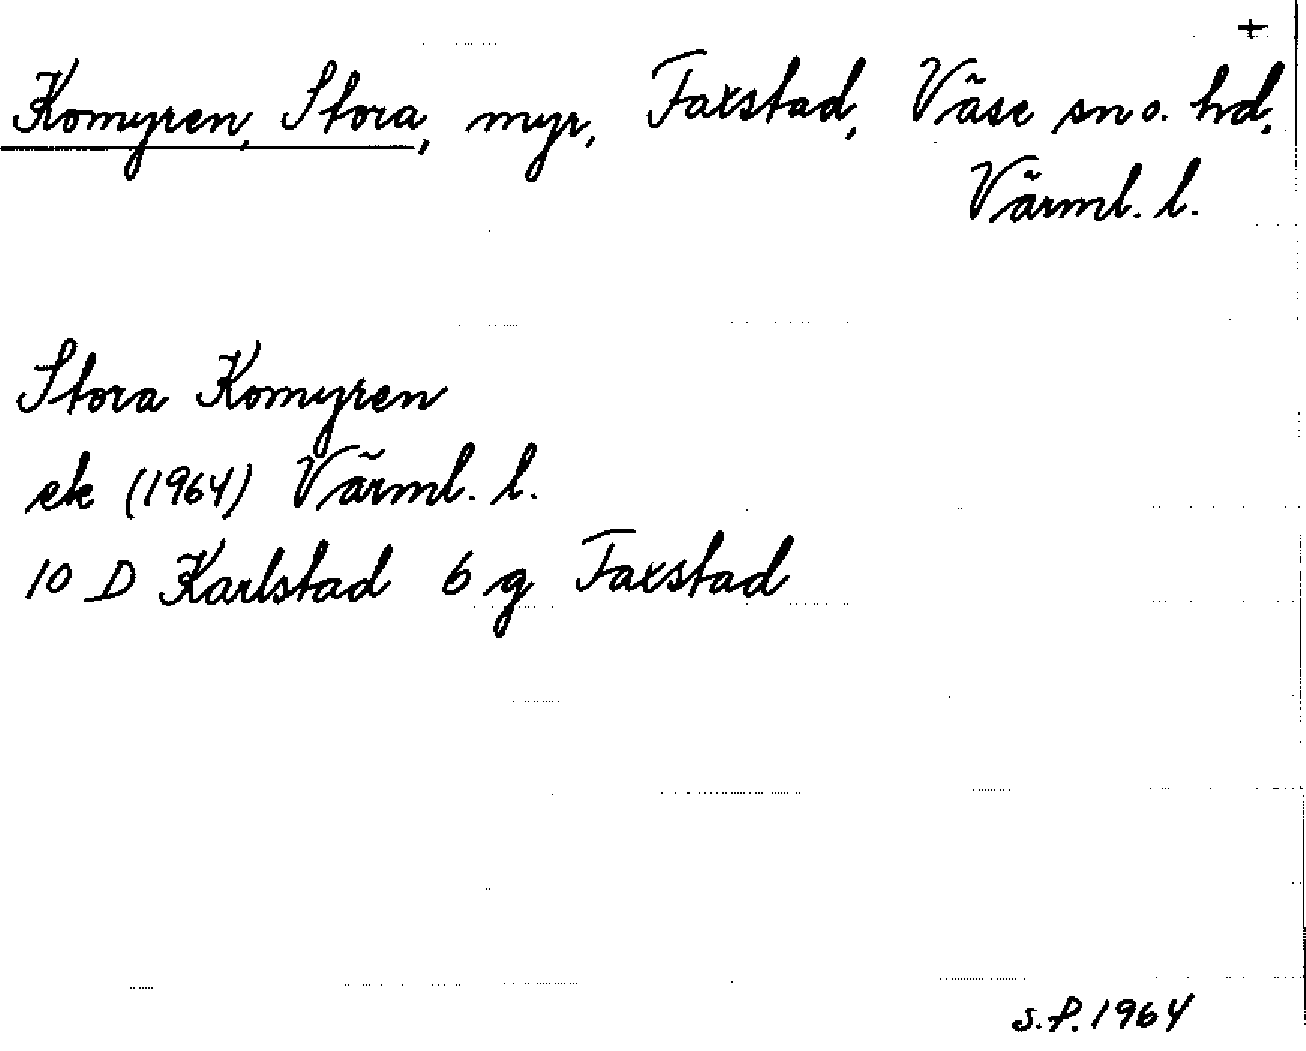 +
Komyren, Stora, myr, Faxstad, Väse sn o. hd,
Värml. l.
Stora Komyren
ek (1964) Värml. l.
10 D Karlstad 6 g Faxstad
S.P. 1964